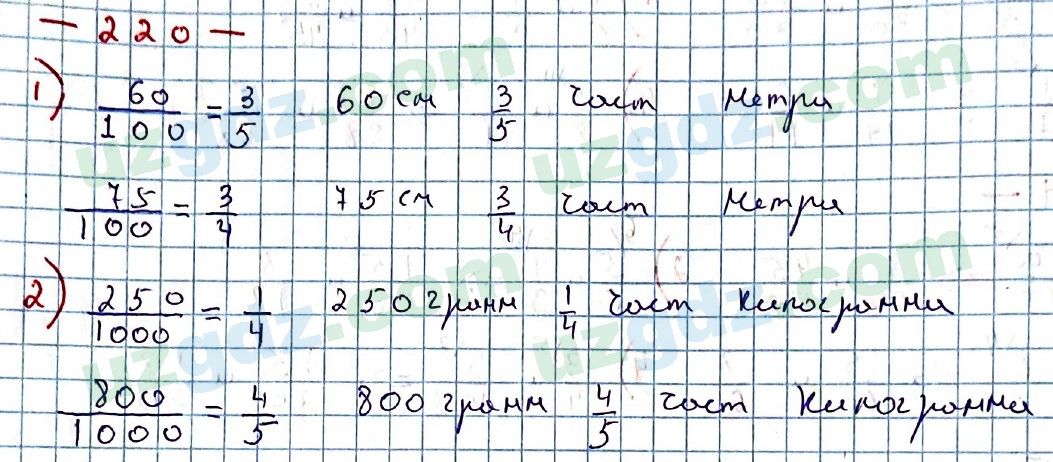 - 220 -
1) 60/100 = 3/5 60 см 3/5 част метри
75/100 = 3/4 75 см 3/4 част метри
2) 250/1000 = 1/4 250 грамм 1/4 част килограмма
800/1000 = 4/5 800 грамм 4/5 част килограмма
uzgdz.com
uzgdz.com
uzgdz.com
uzgdz.com